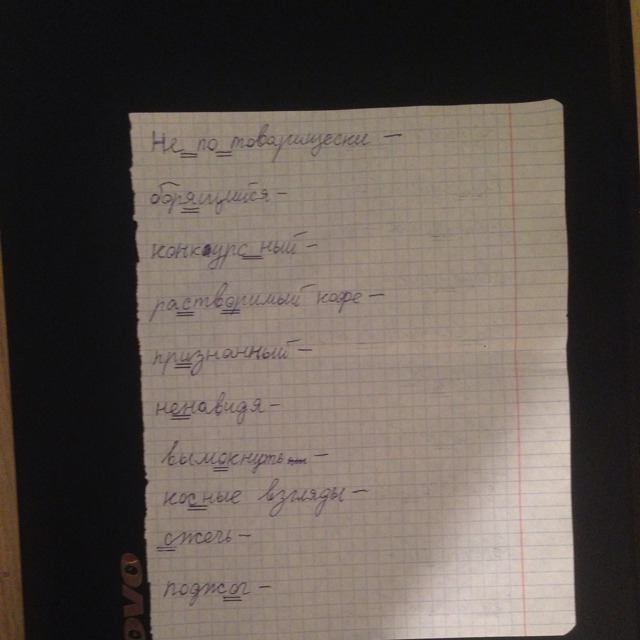 Не по товарищески –
обрящийся –
конкурсный –
растворимый кофе –
признанный –
ненавидя –
вымокнуть –
косные взгляды –
сжечь –
поджог –
ovo